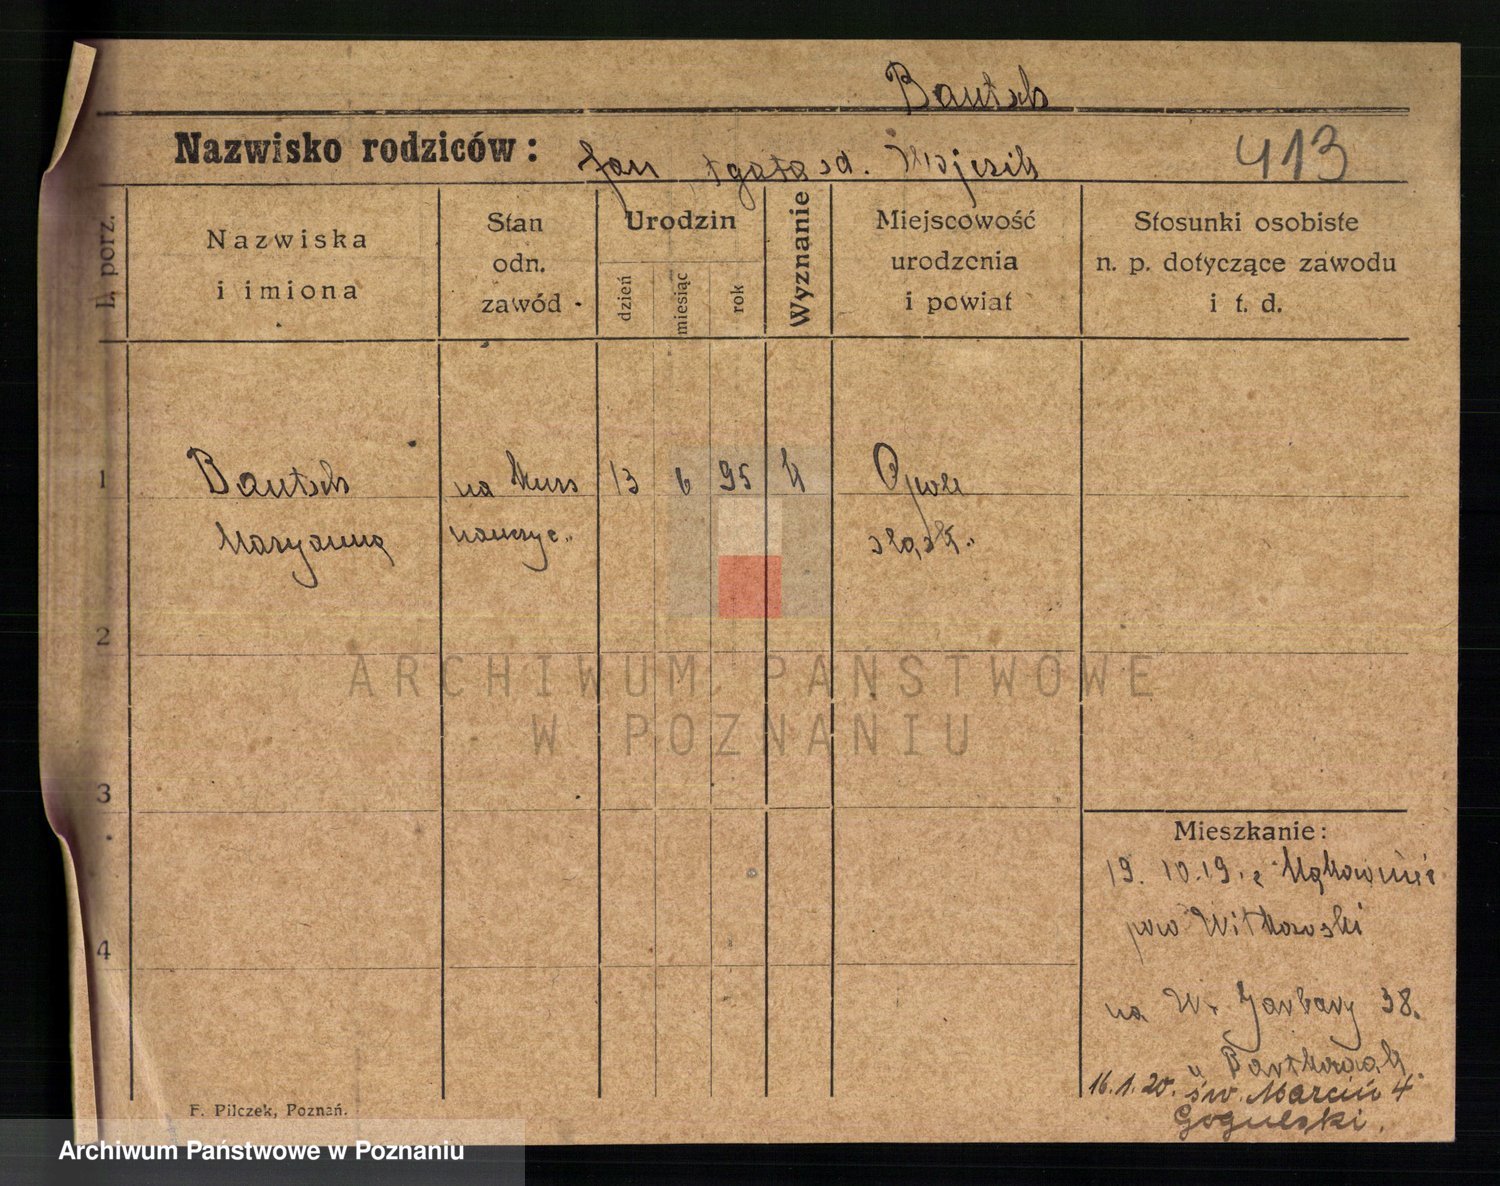 Bautsch
Nazwisko rodziców: Jan Agata sd. Wojcik 413
L. porz.
Nazwiska
i imiona
Stan
odn.
zawód
Urodzin
dzień
miesiąc
rok
Wyznanie
Miejscowość
urodzenia
i powiat
Stosunki osobiste
n. p. dotyczące zawodu
i t. d.
1 Bautsch na kurs 13 6 95 k Opole
Maryanna nauczyc. śląsk.
2
3
4
Mieszkanie:
19.10.19. z
pow Witkowski
na W. Garbary 38.
u
16.1.20. św. Marcin 4
Gogulski.
F. Pilczek, Poznań.
ARCHIWUM PAŃSTWOWE
W POZNANIU
Archiwum Państwowe w Poznaniu